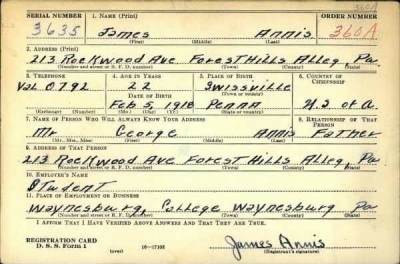 360A
SERIAL NUMBER 1. NAME (Print) ORDER NUMBER
3635 James Annis 360A
(First) (Middle) (Last)
2. ADDRESS (Print)
213 Rockwood Ave. Forest Hills Alleg. Pa.
(Number and street or R. F. D. number) (Town) (County) (State)
3. TELEPHONE 4. AGE IN YEARS 5. PLACE OF BIRTH 6. COUNTRY OF CITIZENSHIP
Val 0792 22 Swissville U.S. of A.
DATE OF BIRTH (Town or county)
Feb 5, 1918 Penna
(Exchange) (Number) (Mo.) (Day) (Yr.) (State or country)
7. NAME OF PERSON WHO WILL ALWAYS KNOW YOUR ADDRESS 8. RELATIONSHIP OF THAT PERSON
Mr George Annis Father
(Mr., Mrs., Miss) (First) (Middle) (Last)
9. ADDRESS OF THAT PERSON
213 Rockwood Ave Forest Hills Alleg. Pa
(Number and street or R. F. D. number) (Town) (County) (State)
10. EMPLOYER'S NAME
Student
11. PLACE OF EMPLOYMENT OR BUSINESS
Waynesburg College Waynesburg Pa
(Number and street or R. F. D. number) (Town) (County) (State)
I AFFIRM THAT I HAVE VERIFIED ABOVE ANSWERS AND THAT THEY ARE TRUE.
REGISTRATION CARD
D. S. S. Form 1 (over) 16—17105
James Annis
(Registrant's signature)